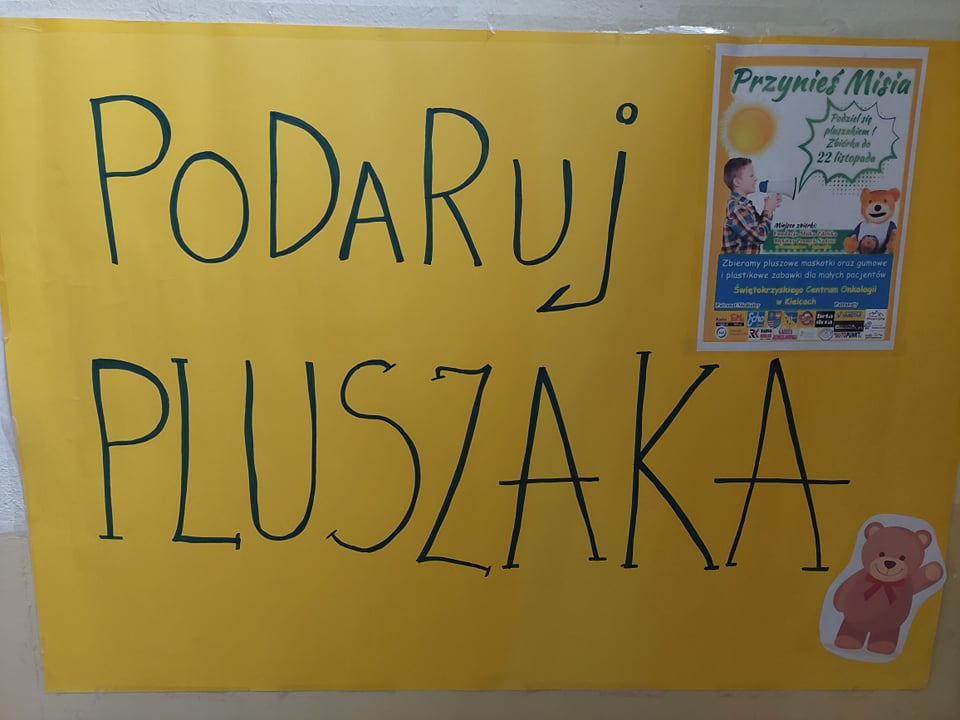 PODARUj
PLUSZAKA
Przynieś Misia
Podziel się
pluszakiem !
Zbiórka do
22 listopada
Miejsce zbiórki:
Zbieramy pluszowe maskotki oraz gumowe
i plastikowe zabawki dla małych pacjentów
Świętokrzyskiego Centrum Onkologii
w Kielcach
Patronat Medialny
Patronaty
Echo